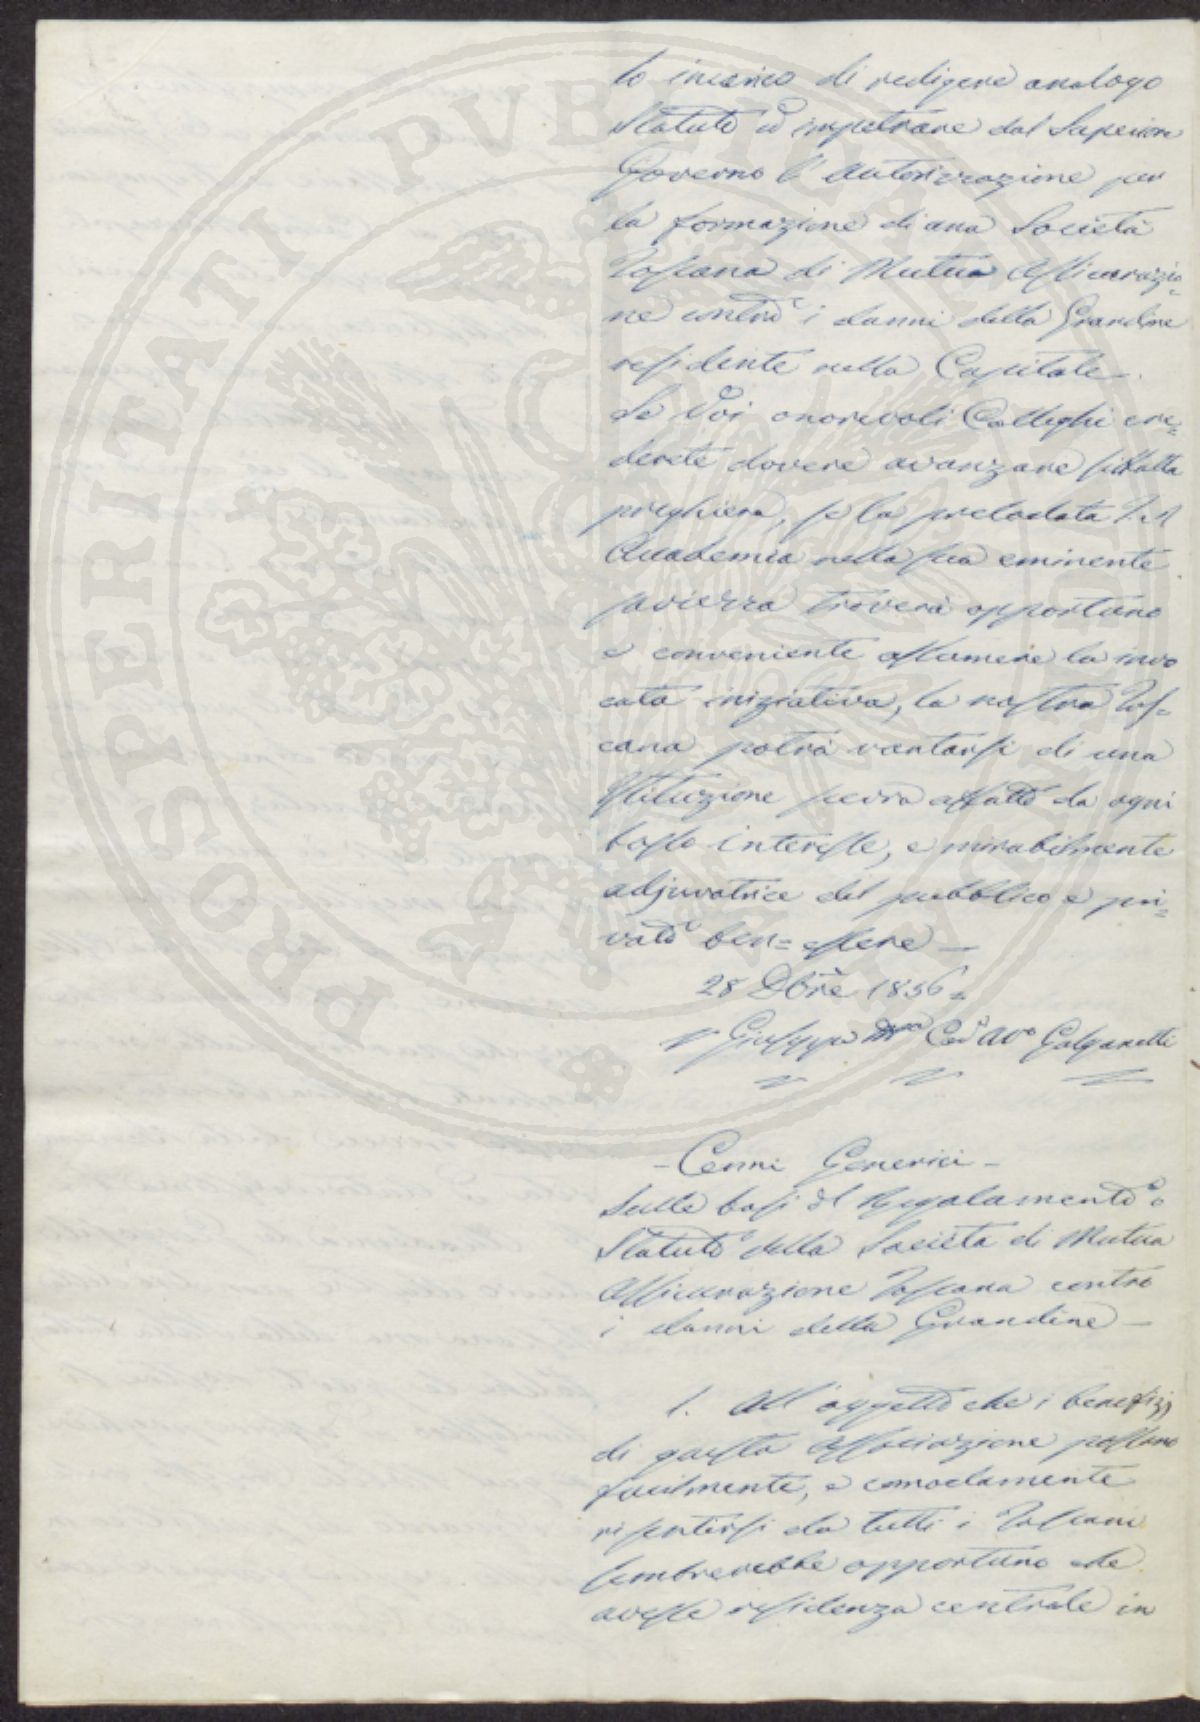 PROSPERITATI PVBLICAE
lo incarico di redigere analogo
Statuto ed impetrare dal Superiore
Governo l'Autorizzazione per
la formazione di una Società
Toscana di Mutua Assicurazio-
ne contro i danni della Grandine
residente nella Capitale -.
Se Voi onorevoli Colleghi cre-
derete dovere avanzare siffatta
preghiera, se la prelodata I. R.
Accademia nella sua eminente
saviezza troverà opportuno
e conveniente assumere la invo
cata iniziativa, la nostra Tos-
cana potrà vantarsi di una
Istituzione scevra affatto da ogni
basso interesse, e mirabilmente
adjuvatrice del pubblico e pri-
vato ben=essere —
28 Xbre 1856 =
= Giuseppe Cav. Avo Galganetti
- Cenni Generici -
Sulle basi del Regolamento o
Statuto della Società di Mutua
Assicurazione Toscana contro
i danni della Grandine —
1. All'oggetto che i benefizj
di questa Associazione possano
facilmente, e comodamente
risentirsi da tutti i Toscani
sembrerebbe opportuno che
avesse residenza centrale in